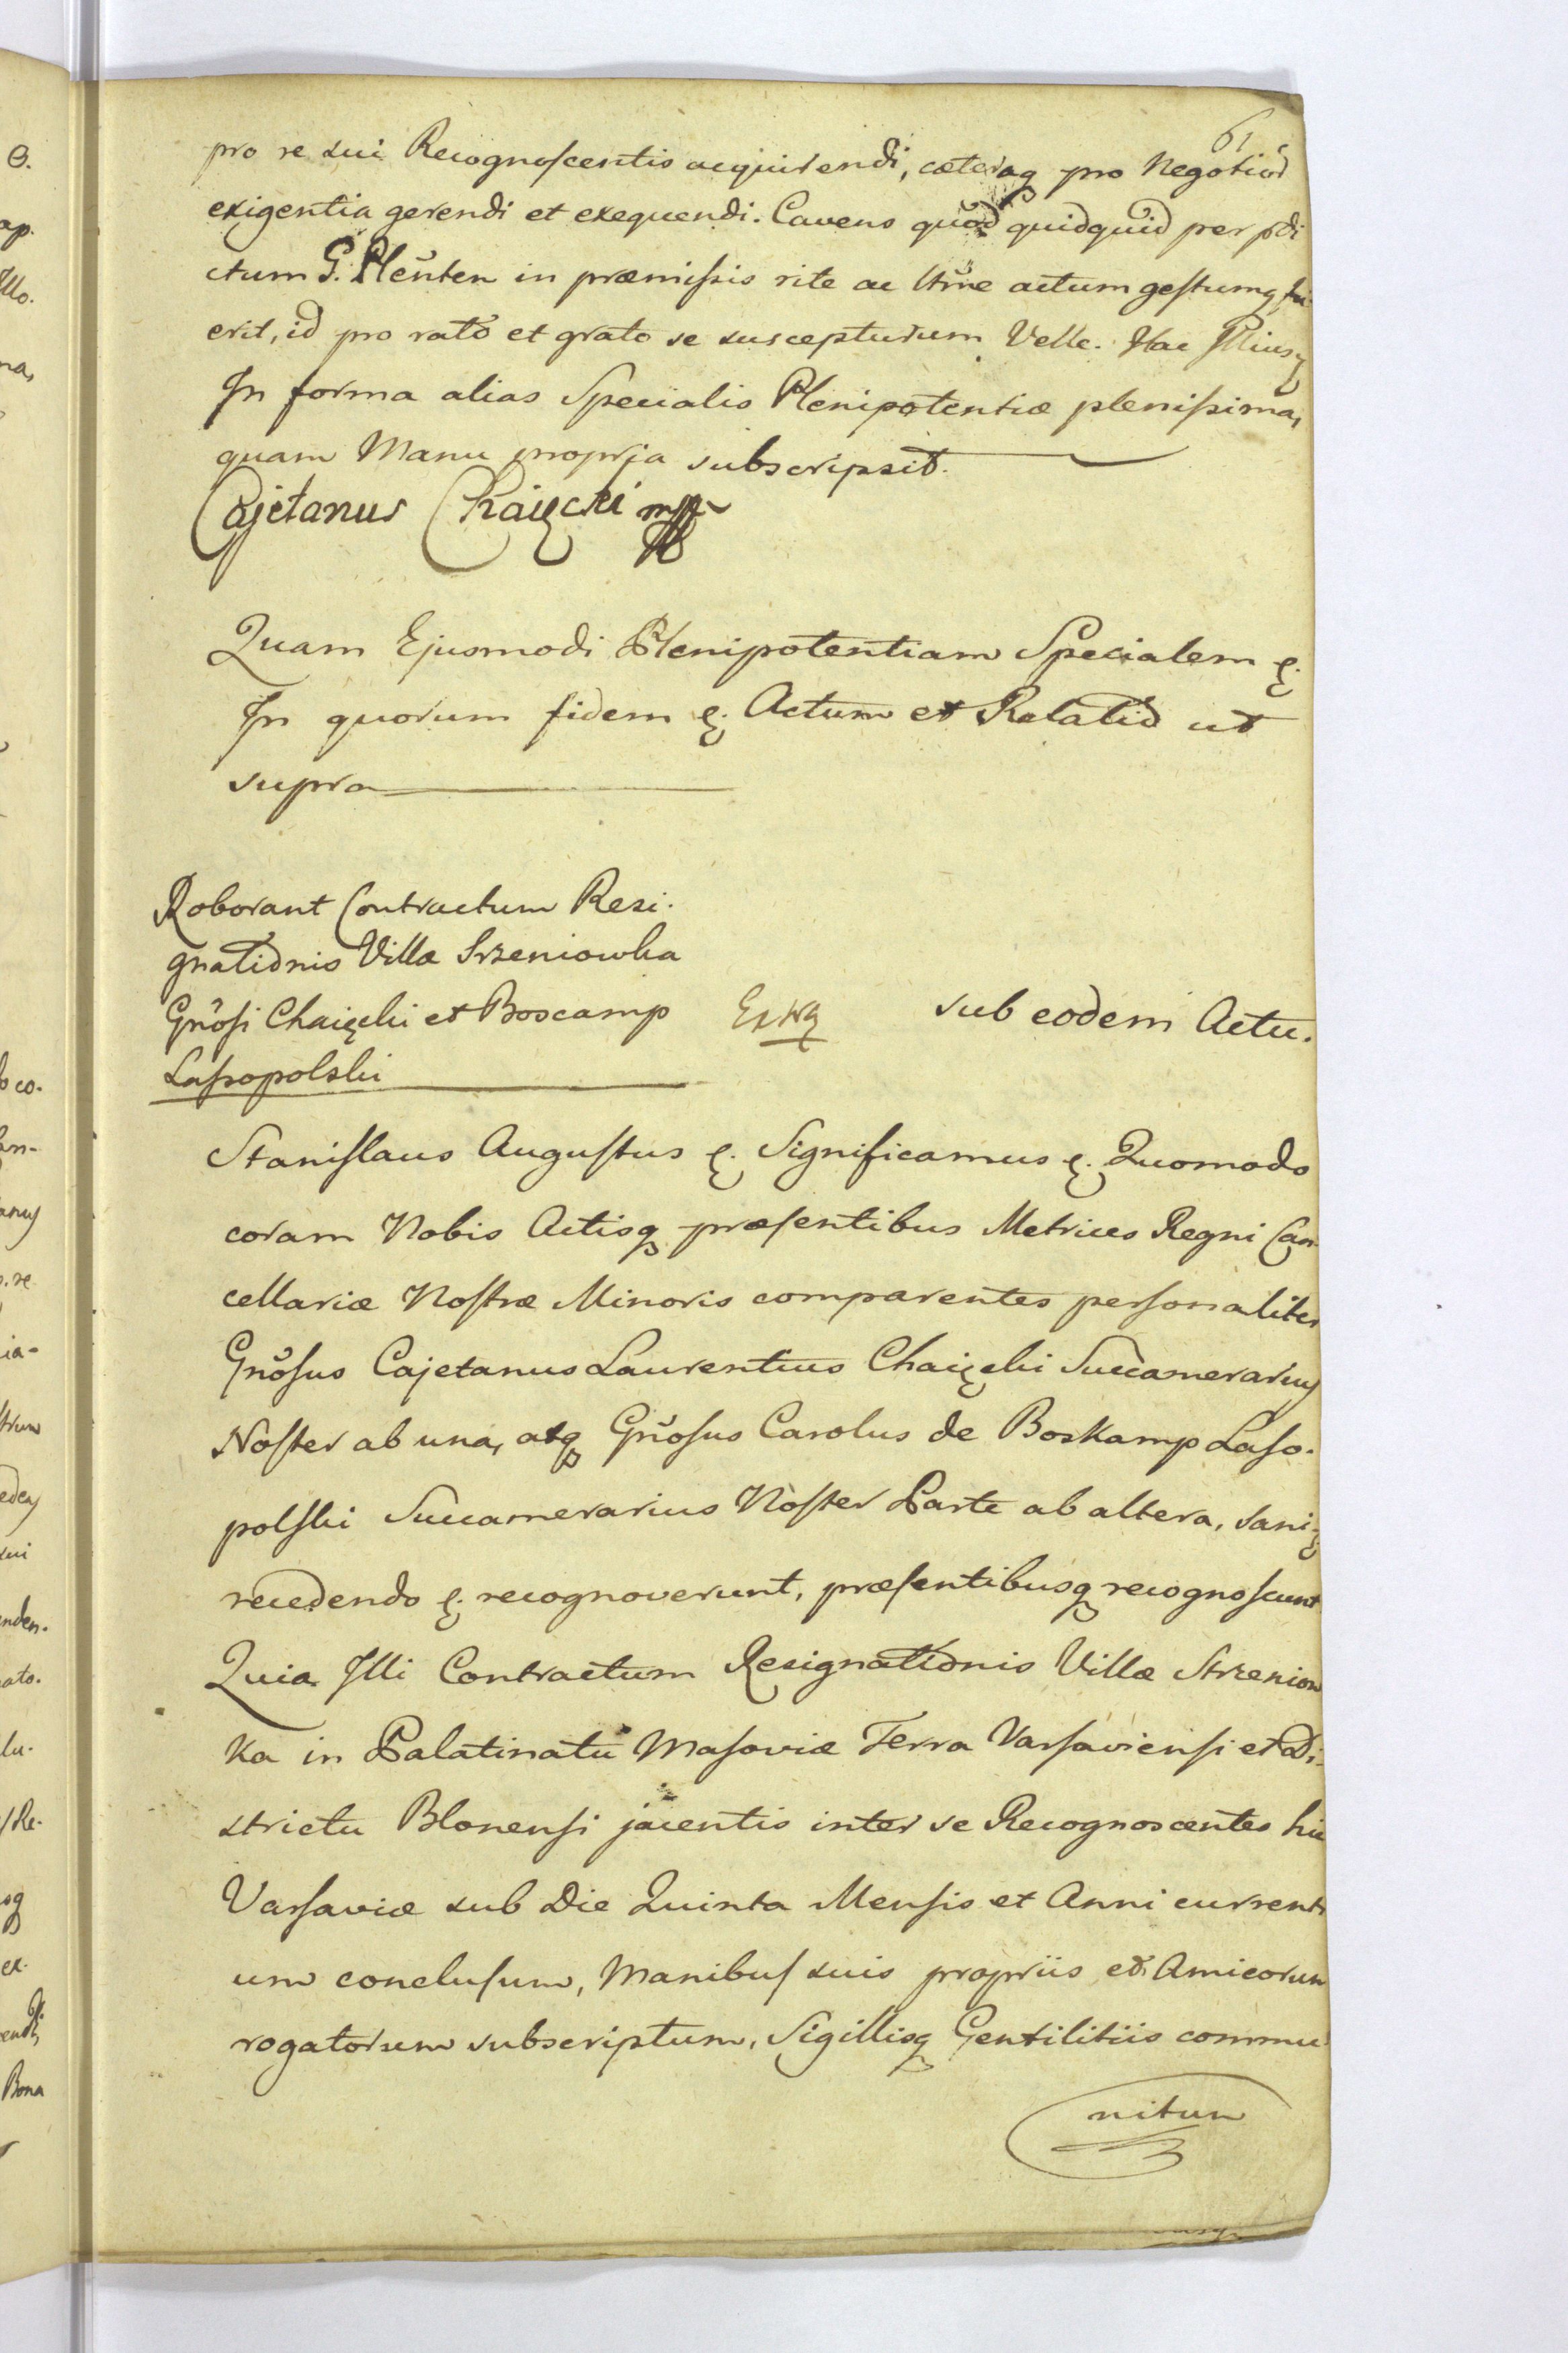 61
pro re sui Recognoscentis acquirendi, cæteraq pro Negotior
exigentia gerendi et exequendi. Cavens quod quidquid per pdi
ctum G. Plenten in præmissis rite ac ltme actum gestumq fu
erit, id pro rato et grato se suscepturum Velle. Hac Illiusq
In forma alias Specialis Plenipotentiæ plenissima,
quam Manu propria subscripsit.
Cajetanus Chaięcki mpp
Quam Ejusmodi Plenipotentiam Specialem ę.
In quorum fidem ę. Actum et Relatio ut
supra
Roborant Contractum Resi.
gnationis Villæ Srzeniowka
Gnosi Chaięcki et Boscamp
Lassopolski
Extrą
sub eodem Actu.
Stanislaus Augustus ę. Significamus ę. Quomodo
coram Nobis Actisq præsentibus Metrices Regni Can
cellariæ Nostræ Minoris comparentes personaliter
Gnosus Cajetanus Laurentius Chaięcki Succamerarius
Noster ab una, atq Gnosus Carolus de Boskamp Laso.
polski Succamerarius Noster Parte ab altera, sani ę
recedendo ę. recognoverunt, præsentibusq recognoscunt
Quia Illi Contractum Resignationis Villæ Strzeniow
ka in Palatinatu Masoviæ Terra Varsaviensi et Di-
strictu Blonensi jacentis inter se Recognoscentes hic
Varsaviæ sub Die Quinta Mensis et Anni currenti
um conclusum, Manibus suis propriis et Amicorum
rogatorum subscriptum, Sigillisq Gentilitiis commu
nitum